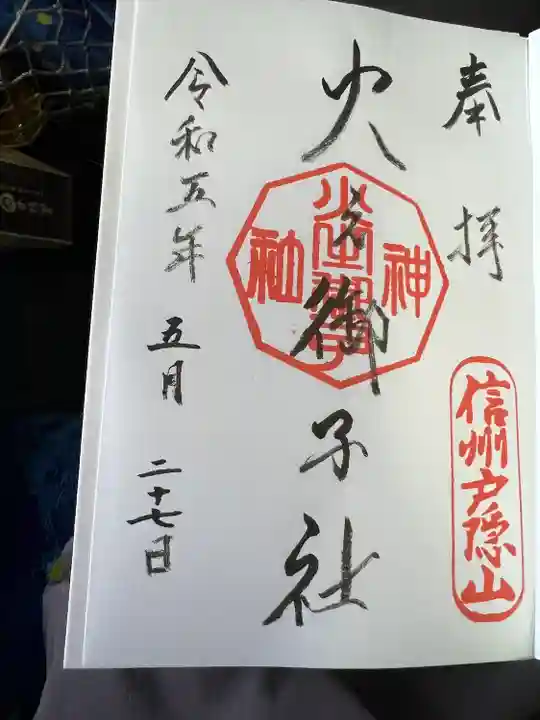 奉拝
信州戸隠山
火之御子社
神社
令和五年 五月 二十七日